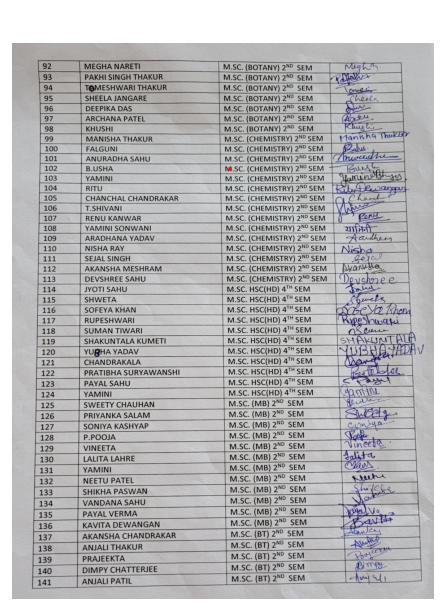 92 MEGHA NARETI M.SC. (BOTANY) 2ND SEM Megha
93 PAKHI SINGH THAKUR M.SC. (BOTANY) 2ND SEM
94 TOMESHWARI THAKUR M.SC. (BOTANY) 2ND SEM
95 SHEELA JANGARE M.SC. (BOTANY) 2ND SEM Sheela
96 DEEPIKA DAS M.SC. (BOTANY) 2ND SEM
97 ARCHANA PATEL M.SC. (BOTANY) 2ND SEM
98 KHUSHI M.SC. (BOTANY) 2ND SEM Khushi
99 MANISHA THAKUR M.SC. (CHEMISTRY) 2ND SEM Manisha Thakur
100 FALGUNI M.SC. (CHEMISTRY) 2ND SEM
101 ANURADHA SAHU M.SC. (CHEMISTRY) 2ND SEM Anuradha
102 B.USHA M.SC. (CHEMISTRY) 2ND SEM
103 YAMINI M.SC. (CHEMISTRY) 2ND SEM
104 RITU M.SC. (CHEMISTRY) 2ND SEM Ritu Dewangan
105 CHANCHAL CHANDRAKAR M.SC. (CHEMISTRY) 2ND SEM
106 T.SHIVANI M.SC. (CHEMISTRY) 2ND SEM
107 RENU KANWAR M.SC. (CHEMISTRY) 2ND SEM Renu
108 YAMINI SONWANI M.SC. (CHEMISTRY) 2ND SEM यामिनी
109 ARADHANA YADAV M.SC. (CHEMISTRY) 2ND SEM
110 NISHA RAY M.SC. (CHEMISTRY) 2ND SEM Nisha
111 SEJAL SINGH M.SC. (CHEMISTRY) 2ND SEM Sejal
112 AKANSHA MESHRAM M.SC. (CHEMISTRY) 2ND SEM Akansha
113 DEVSHREE SAHU M.SC. (CHEMISTRY) 2ND SEM Devshree
114 JYOTI SAHU M.SC. HSC(HD) 4TH SEM
115 SHWETA M.SC. HSC(HD) 4TH SEM Shweta
116 SOFEYA KHAN M.SC. HSC(HD) 4TH SEM Sofeya Khan
117 RUPESHWARI M.SC. HSC(HD) 4TH SEM Rupeshwari
118 SUMAN TIWARI M.SC. HSC(HD) 4TH SEM
119 SHAKUNTALA KUMETI M.SC. HSC(HD) 4TH SEM SHAKUNTALA
120 YUBHA YADAV M.SC. HSC(HD) 4TH SEM YUBHA YADAV
121 CHANDRAKALA M.SC. HSC(HD) 4TH SEM
122 PRATIBHA SURYAWANSHI M.SC. HSC(HD) 4TH SEM
123 PAYAL SAHU M.SC. HSC(HD) 4TH SEM Payal
124 YAMINI M.SC. HSC(HD) 4TH SEM Yamini
125 SWEETY CHAUHAN M.SC. (MB) 2ND SEM
126 PRIYANKA SALAM M.SC. (MB) 2ND SEM
127 SONIYA KASHYAP M.SC. (MB) 2ND SEM
128 P.POOJA M.SC. (MB) 2ND SEM
129 VINEETA M.SC. (MB) 2ND SEM Vineeta
130 LALITA LAHRE M.SC. (MB) 2ND SEM Lalita
131 YAMINI M.SC. (MB) 2ND SEM
132 NEETU PATEL M.SC. (MB) 2ND SEM
133 SHIKHA PASWAN M.SC. (MB) 2ND SEM
134 VANDANA SAHU M.SC. (MB) 2ND SEM
135 PAYAL VERMA M.SC. (MB) 2ND SEM
136 KAVITA DEWANGAN M.SC. (MB) 2ND SEM
137 AKANSHA CHANDRAKAR M.SC. (BT) 2ND SEM
138 ANJALI THAKUR M.SC. (BT) 2ND SEM
139 PRAJEEKTA M.SC. (BT) 2ND SEM
140 DIMPY CHATTERJEE M.SC. (BT) 2ND SEM Dimpy
141 ANJALI PATIL M.SC. (BT) 2ND SEM